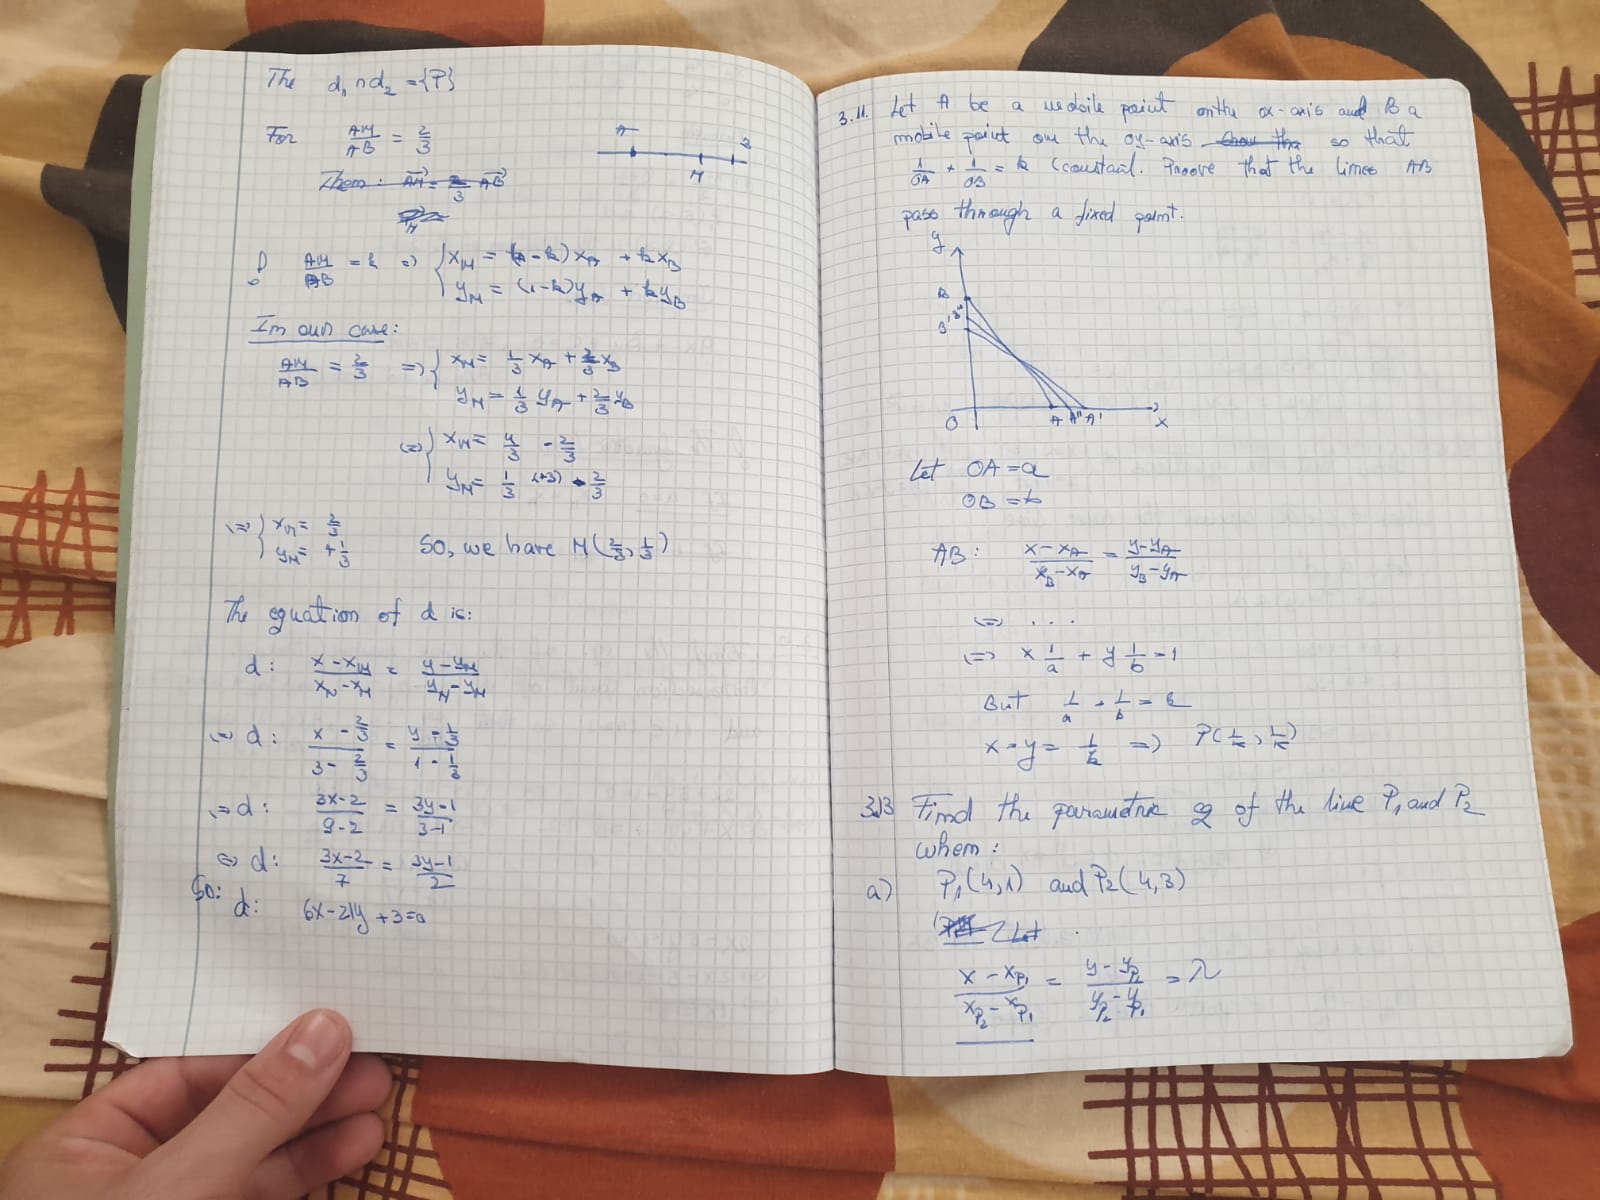 The d₁ ∩ d₂ = {P}
For AM/AB = 2/3
A M B
Then: AM = 2/3 AB
! AM/AB = k => { x_M = (1-k)x_A + kx_B
y_M = (1-k)y_A + ky_B
In our case:
AM/AB = 2/3 => { x_M = 1/3 x_A + 2/3 x_B
y_M = 1/3 y_A + 2/3 y_B
(=) { x_M = 4/3 - 2/3
y_M = 1/3 (+3) - 2/3
(=) { x_M = 2/3
y_M = +1/3
SO, we have M(2/3, 1/3)
The equation of d is:
d: (x-x_M)/(x_N-x_M) = (y-y_M)/(y_N-y_M)
(=) d: (x - 2/3)/(3 - 2/3) = (y - 1/3)/(1 - 1/3)
=> d: (3x-2)/(9-2) = (3y-1)/(3-1)
(=) d: (3x-2)/7 = (3y-1)/2
So: d: 6x-21y+3=0
3.11. Let A be a mobile point on the ox-axis and B a
mobile point on the oy-axis so that
1/OA + 1/OB = k (constant. Proove that the lines AB
pass through a fixed point.
y
B
B''
B'
O A A'' A' x
Let OA = a
OB = b
AB: (x-x_A)/(x_B-x_A) = (y-y_A)/(y_B-y_A)
(=) . . .
(=) x 1/a + y 1/b = 1
But 1/a + 1/b = k
x = y = 1/k => P(1/k, 1/k)
3.13 Find the parametric eq of the line P₁ and P₂
when:
a) P₁(4,1) and P₂(4,3)
Let
(x - x_P₁)/(x_P₂ - x_P₁) = (y - y_P₁)/(y_P₂ - y_P₁) = λ